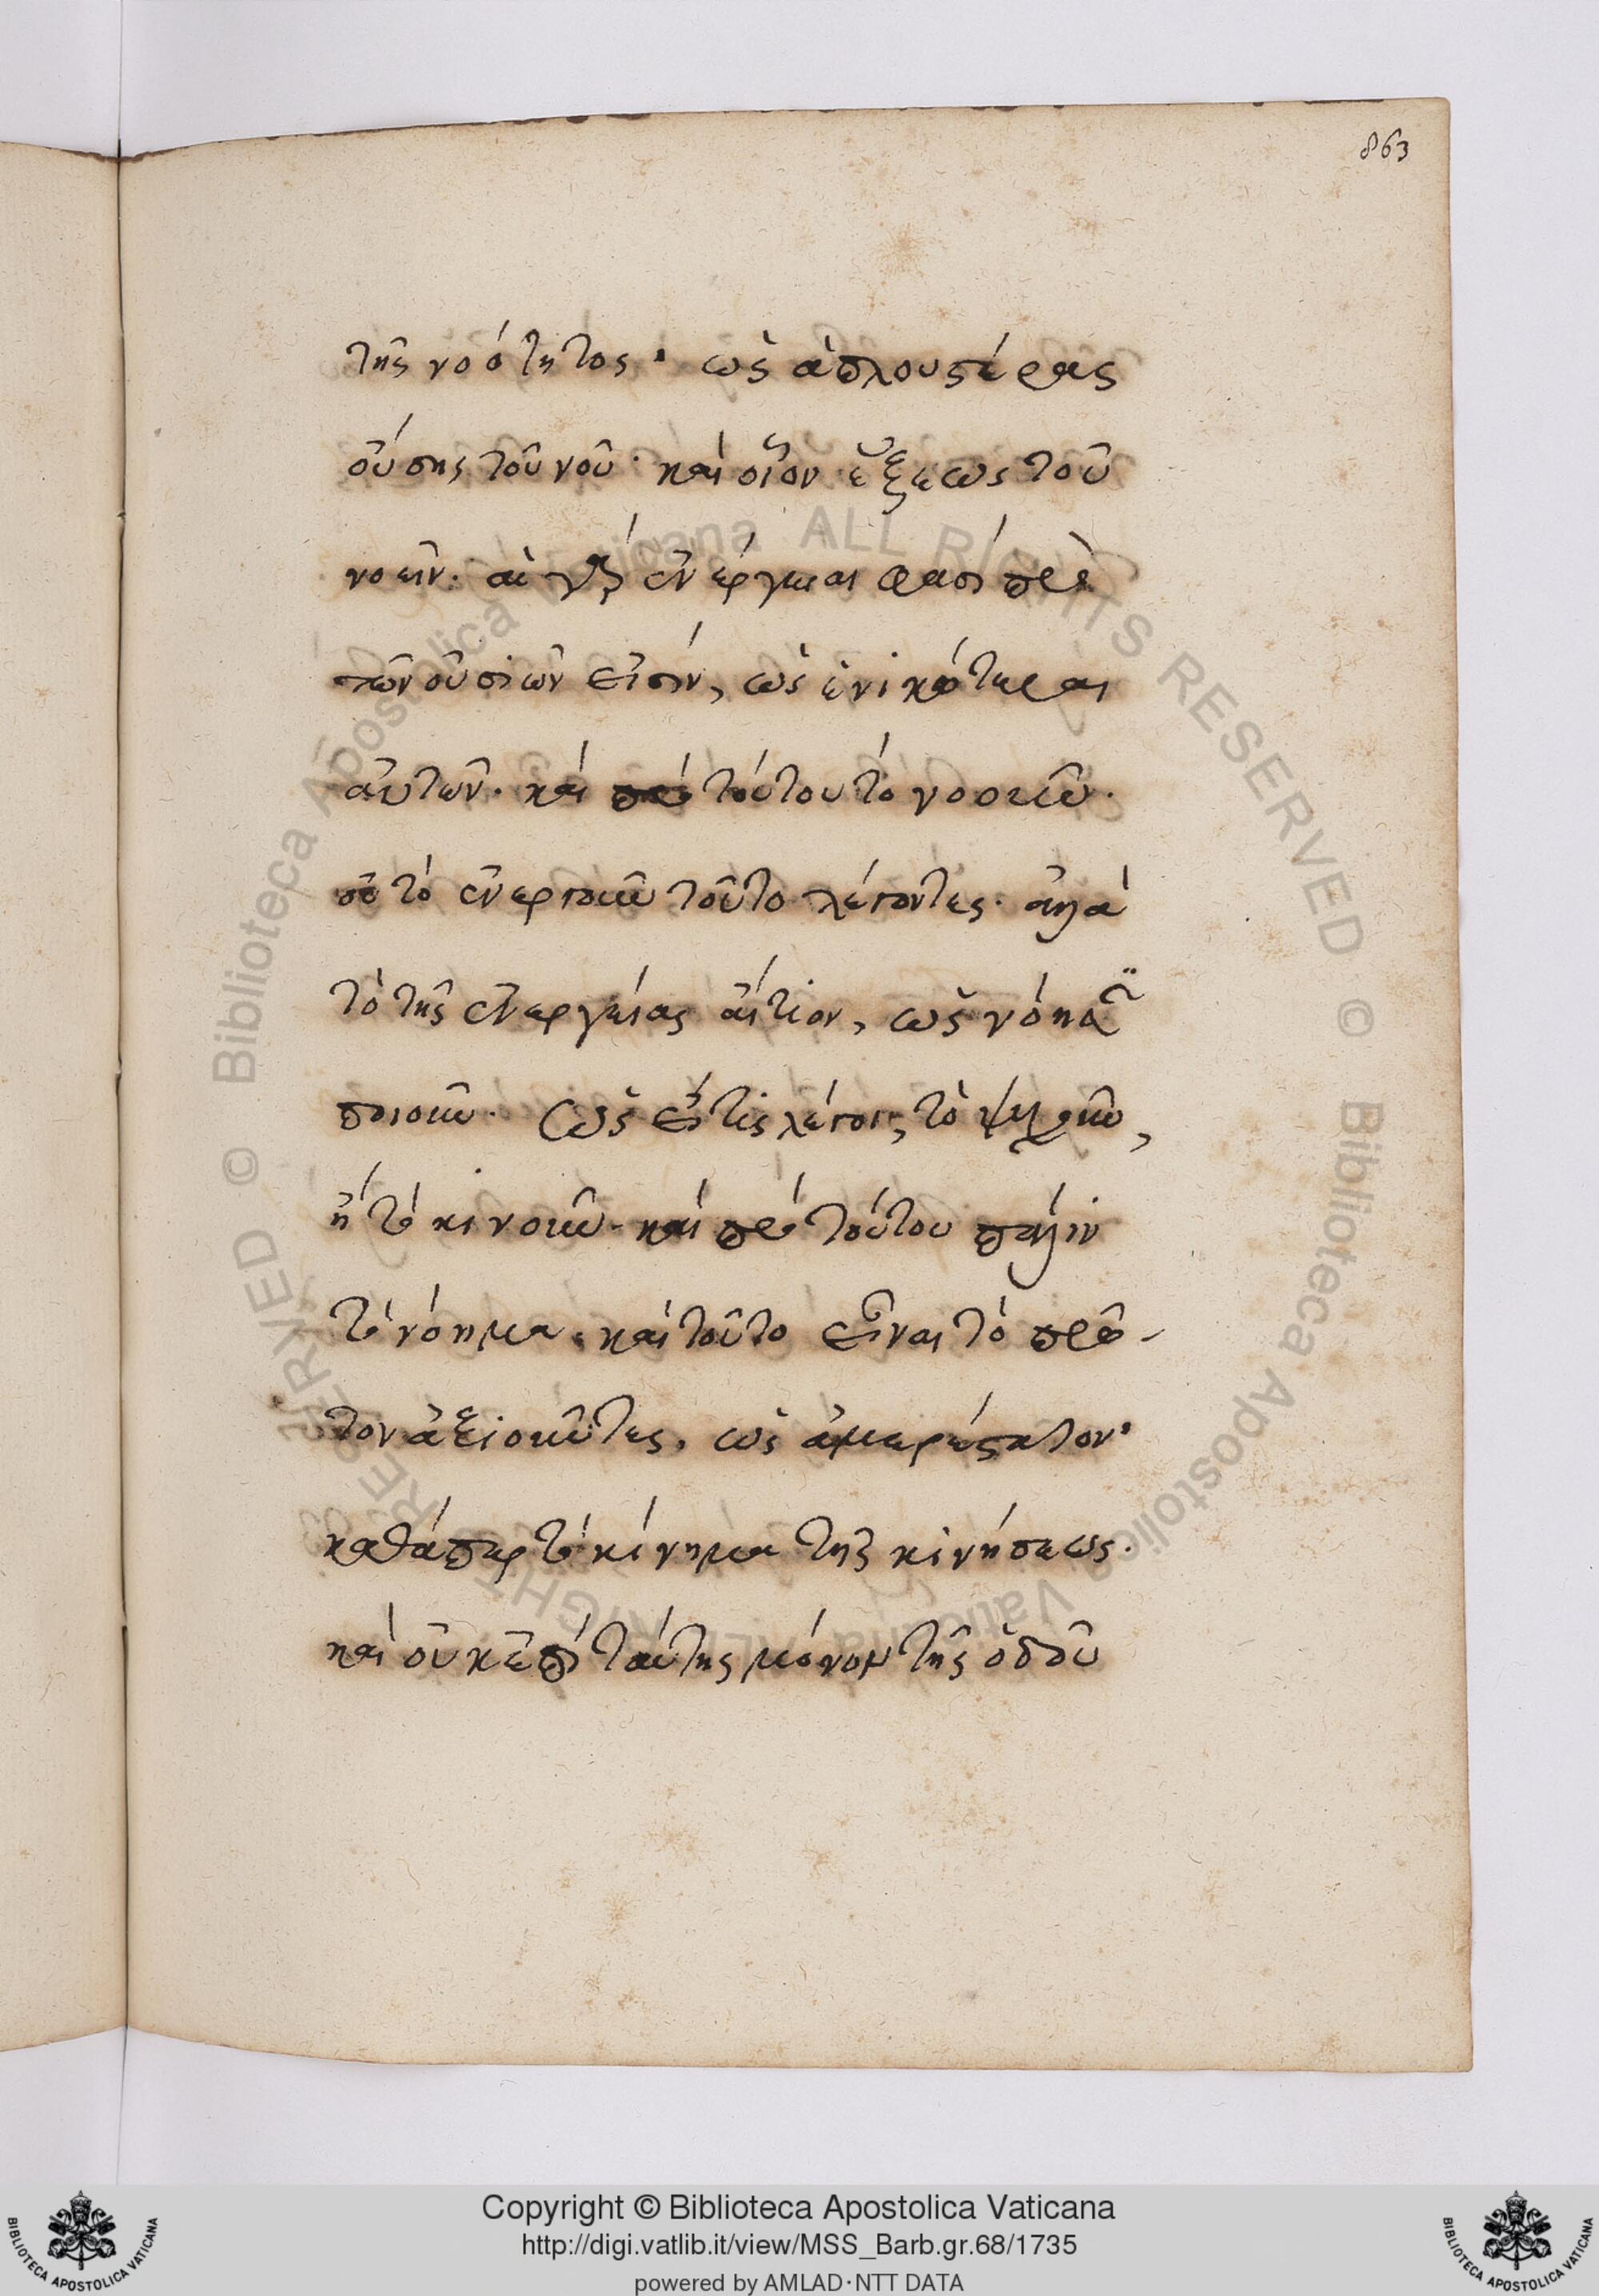 863
τῆς νοότητος· ὡς ἁπλουστέρας
οὔσης τοῦ νοῦ· καὶ οἷον ἕξεως τοῦ
νοεῖν· αἱ γὰρ ἐνέργειαι φασὶ πρὸ
τῶν οὐσιῶν εἰσίν, ὡς ἑνικώτεραι
αὐτῶν· καὶ πρὸ τούτου τὸ νοοῦν·
οὐ τὸ ἐνεργοῦν τοῦτο λέγοντες· ἀλλὰ
τὸ τῆς ἐνεργείας αἴτιον, ὡς νόημα
ποιοῦν· ὡς εἴ τις λέγοι, τὸ ψυχοῦν,
ἢ τὸ κινοῦν· καὶ πρὸ τούτου πάλιν
τὸ νόημα· καὶ τοῦτο εἶναι τὸ πρῶ-
τον ἀξιοῦντες, ὡς ἀμερέστατον·
καθάπερ τὸ κίνημα τῆς κινήσεως·
καὶ οὐκ ἐπὶ ταύτης μόνον τῆς ὁδοῦ
© Biblioteca Apostolica Vaticana ALL RIGHTS RESERVED
© Biblioteca Apostolica Vaticana ALL RIGHTS RESERVED
Copyright © Biblioteca Apostolica Vaticana
http://digi.vatlib.it/view/MSS_Barb.gr.68/1735
powered by AMLAD·NTT DATA
BIBLIOTECA APOSTOLICA VATICANA
BIBLIOTECA APOSTOLICA VATICANA